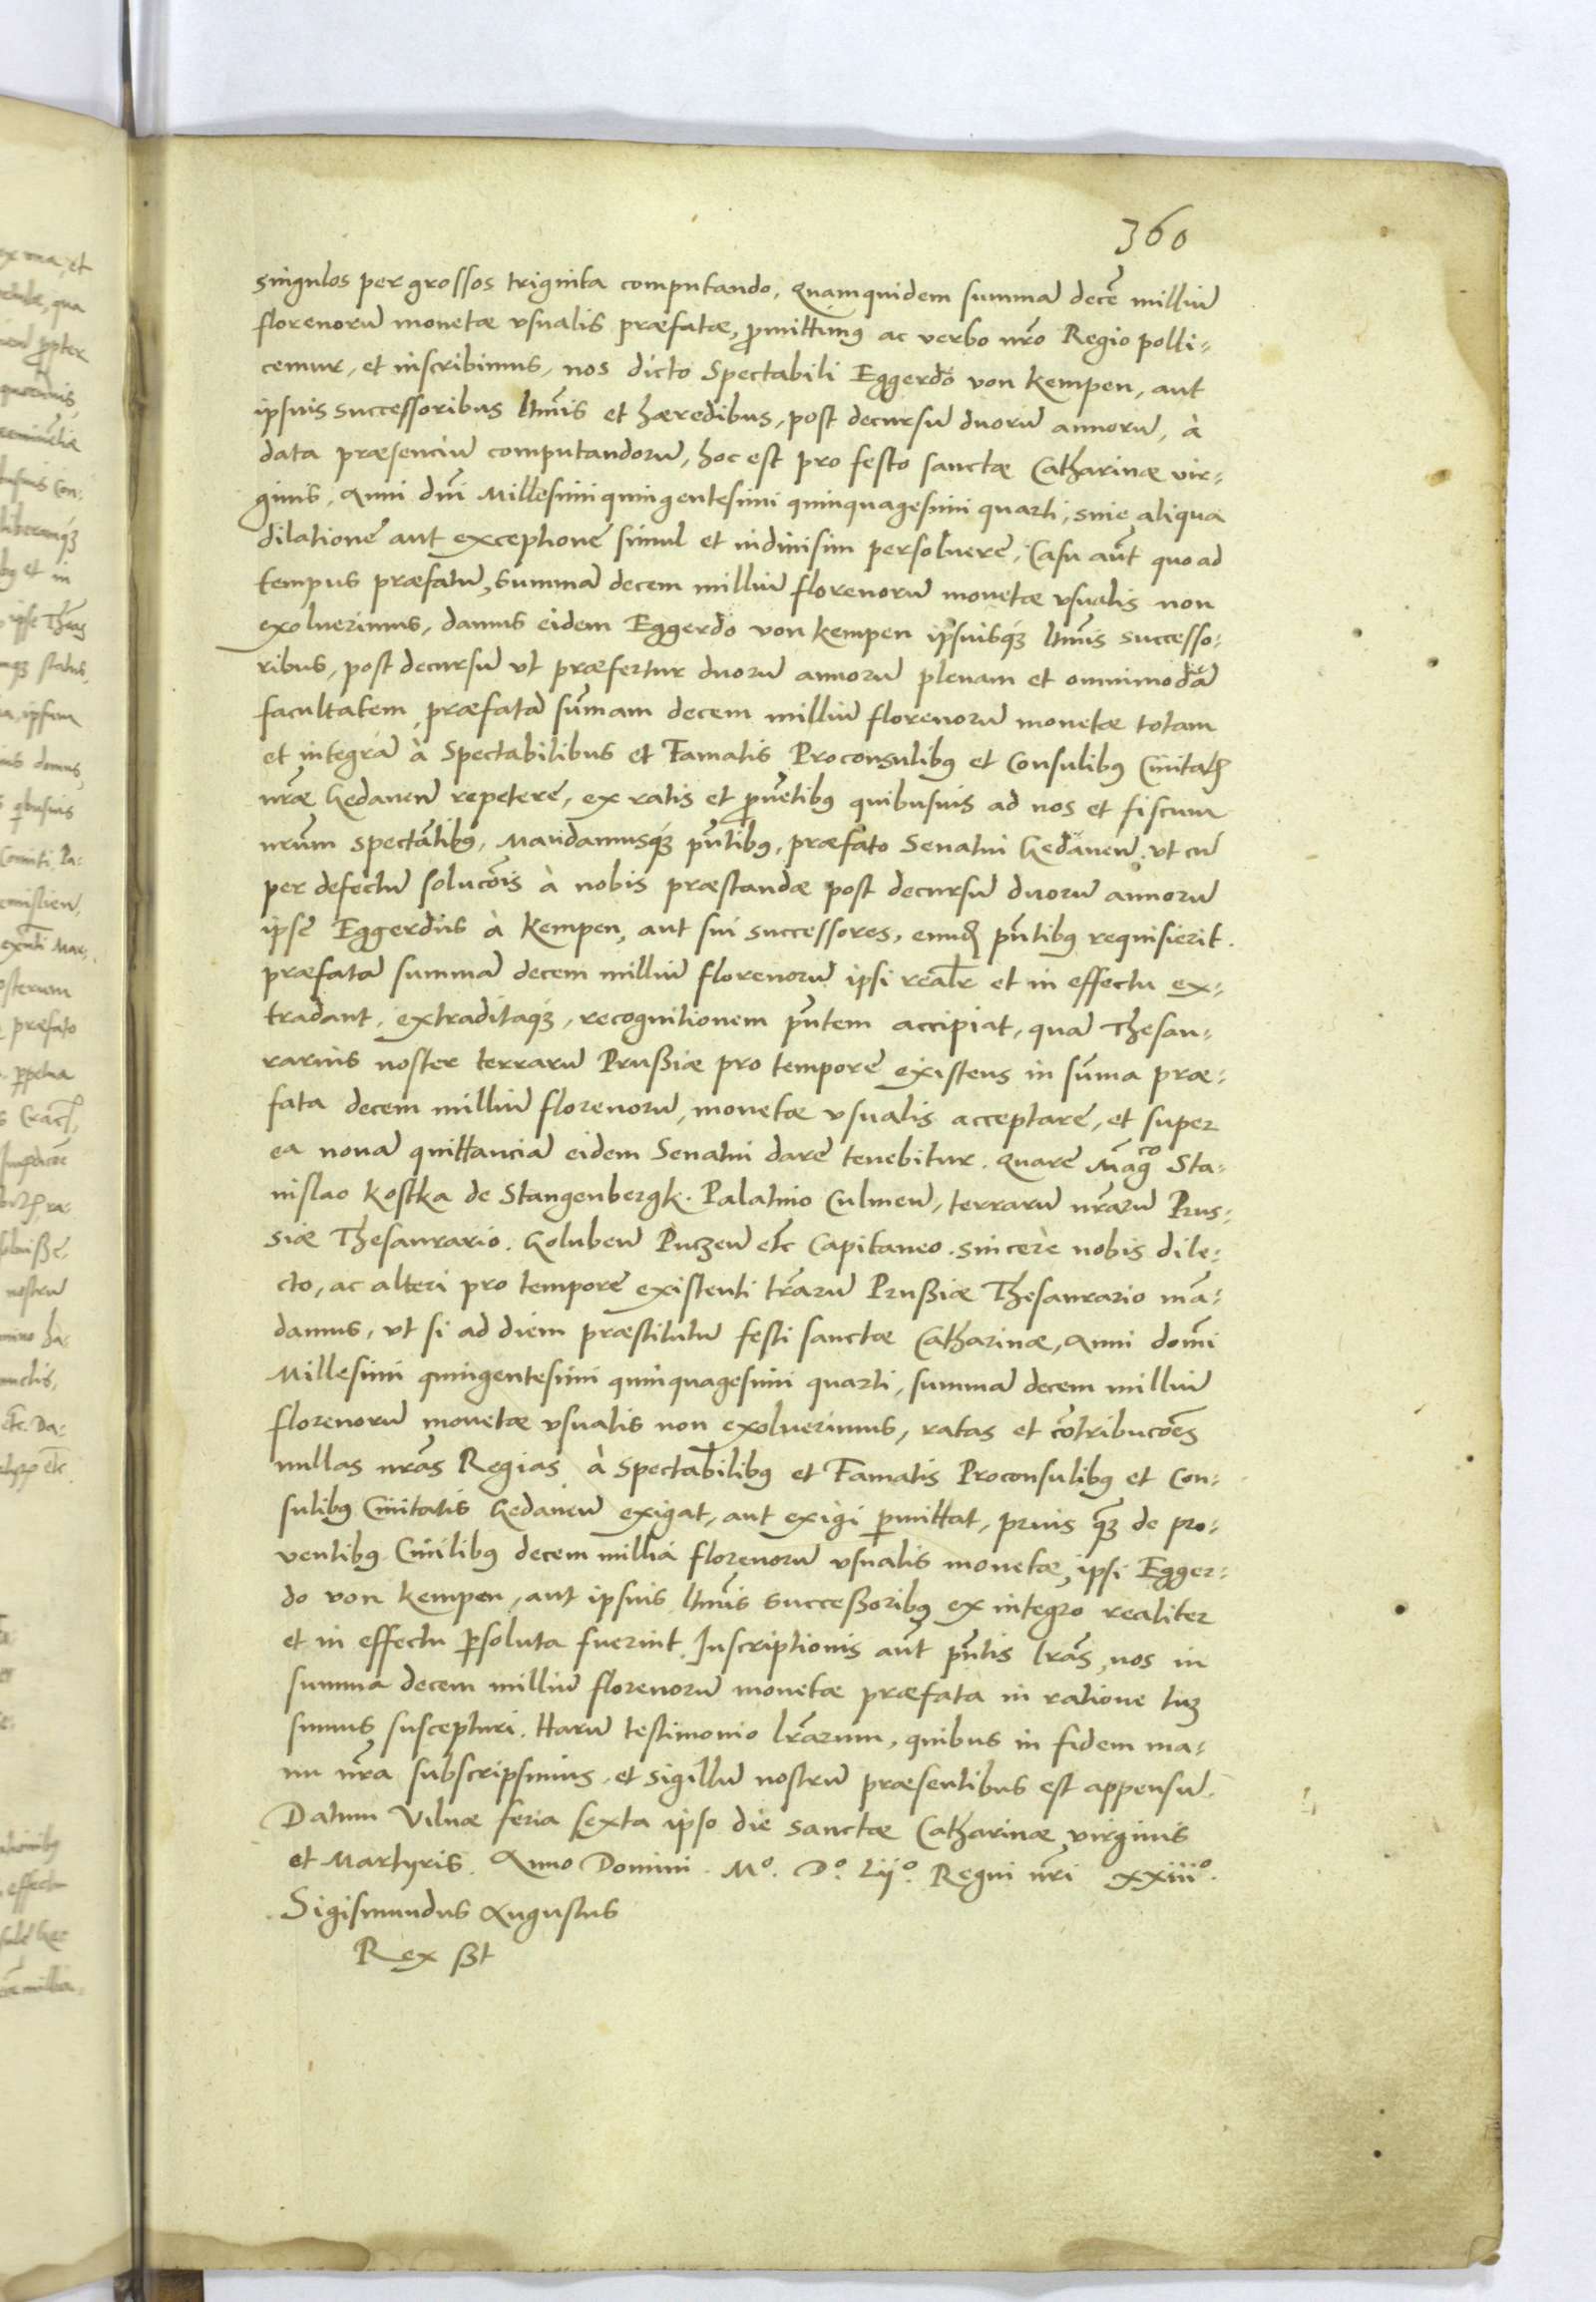 360
singulos per grossos triginta computando, Quamquidem summã decẽ milliũ
florenorũ monetæ vsualis præfatæ, ꝓmittimꝰ ac verbo nr̃o Regio polli:
cemur, et inscribimus, nos dicto Spectabili Eggerdo von Kempen, aut
ipsius successoribus ltim̃is et hæredibus, post decursũ duorũ annorũ, à
data præsenciũ computandorũ, hoc est pro festo sanctæ Catharinæ vir:
ginis, Anni dn̄i Millesimi quingentesimi quinquagesimi quarti, sine aliqua
dilatione aut exceptione simul et indiuisim persoluere, Casu aũt quo ad
tempus præfatũ, summã decem milliũ florenorũ monetæ vsualis non
exoluerimus, damus eidem Eggerdo von Kempen ipsiusqꝫ ltim̃is successo:
ribus, post decursũ vt præfertur duorũ annorũ plenam et omnimodã
facultatem præfatã sum̃am decem milliũ florenorũ monetæ totam
et integrã à Spectabilibus et Famatis Proconsulibꝰ et Consulibꝰ Ciuitatꝭ
nr̃æ Gedanen̄ repetere, ex ratis et ꝓuẽtibꝰ quibusuis ad nos et fiscum
nr̃um spectãtibꝰ, Mandamusqꝫ pñtibꝰ, præfato Senatui Gedanen̄, vt cũ
per defectũ soluc̃ois à nobis præstandæ post decursũ duorũ annorũ
ipse Eggerdus à Kempen, aut sui successores, eundẽ pñtibꝰ requisierit.
præfatã summã decem milliũ florenorũ ipsi realr̃ et in effectu ex:
tradant, extraditaqꝫ, recognitionem pñtem accipiat, quã Thesau:
rarius noster terrarũ Prußiæ pro tempore existens in sum̃a præ:
fata decem milliũ florenorũ, monetæ vsualis acceptare, et super
ea nouã quittanciã eidem Senatui dare tenebitur. Quare Mãgco Sta:
nislao Kostka de Stangenbergk. Palatino Culmen̄, terrarũ nr̃arũ Prus:
siæ Thesaurario. Goluben̄ Puczen̄ etc̃ Capitaneo. sincerè nobis dile:
cto, ac alteri pro tempore existenti tr̃arũ Prußiæ Thesaurario mã:
damus, vt si ad diem præstitutũ festi sanctæ Catharinæ, Anni dom̃i
Millesimi quingentesimi quinquagesimi quarti, summã decem milliũ
florenorũ monetæ vsualis non exoluerimus, ratas et cõtribuc̃oes
nullas nr̃as Regias à Spectabilibꝰ et Famatis Proconsulibꝰ et Con:
sulibꝰ Ciuitatis Gedanen̄ exigat, aut exigi ꝑmittat, prius qꝫ̃ de pro:
ventibꝰ Ciuilibꝰ decem millia florenorũ vsualis monetæ, ipsi Egger:
do von Kempen, aut ipsius ltim̃is successoribꝰ ex integro realiter
et in effectu ꝑsoluta fuerint. Inscriptionis aũt pñtis lr̃as, nos in
summa decem milliũ florenorũ monetæ præfata in ratione tuꝫ
sumus suscepturi. Harũ testimonio lr̃arum, quibus in fidem ma:
nu nr̃a subscripsimus, et sigillũ nostrũ præsentibus est appensũ.
Datum Vilnæ feria sexta ipso die sanctæ Catharinæ virginis
et Martyris. Anno Domini. Mº. Dº. Lijº. Regni nr̃i xxiiiº.
Sigismundus Augustus
Rex ßt